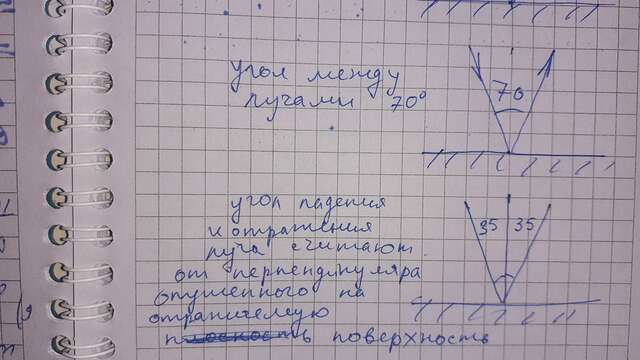 угол между
лучами 70°
70
угол падения
и отражения
луча считают
от перпендикуляра
опущенного на
отражаемую
поверхность
35 35